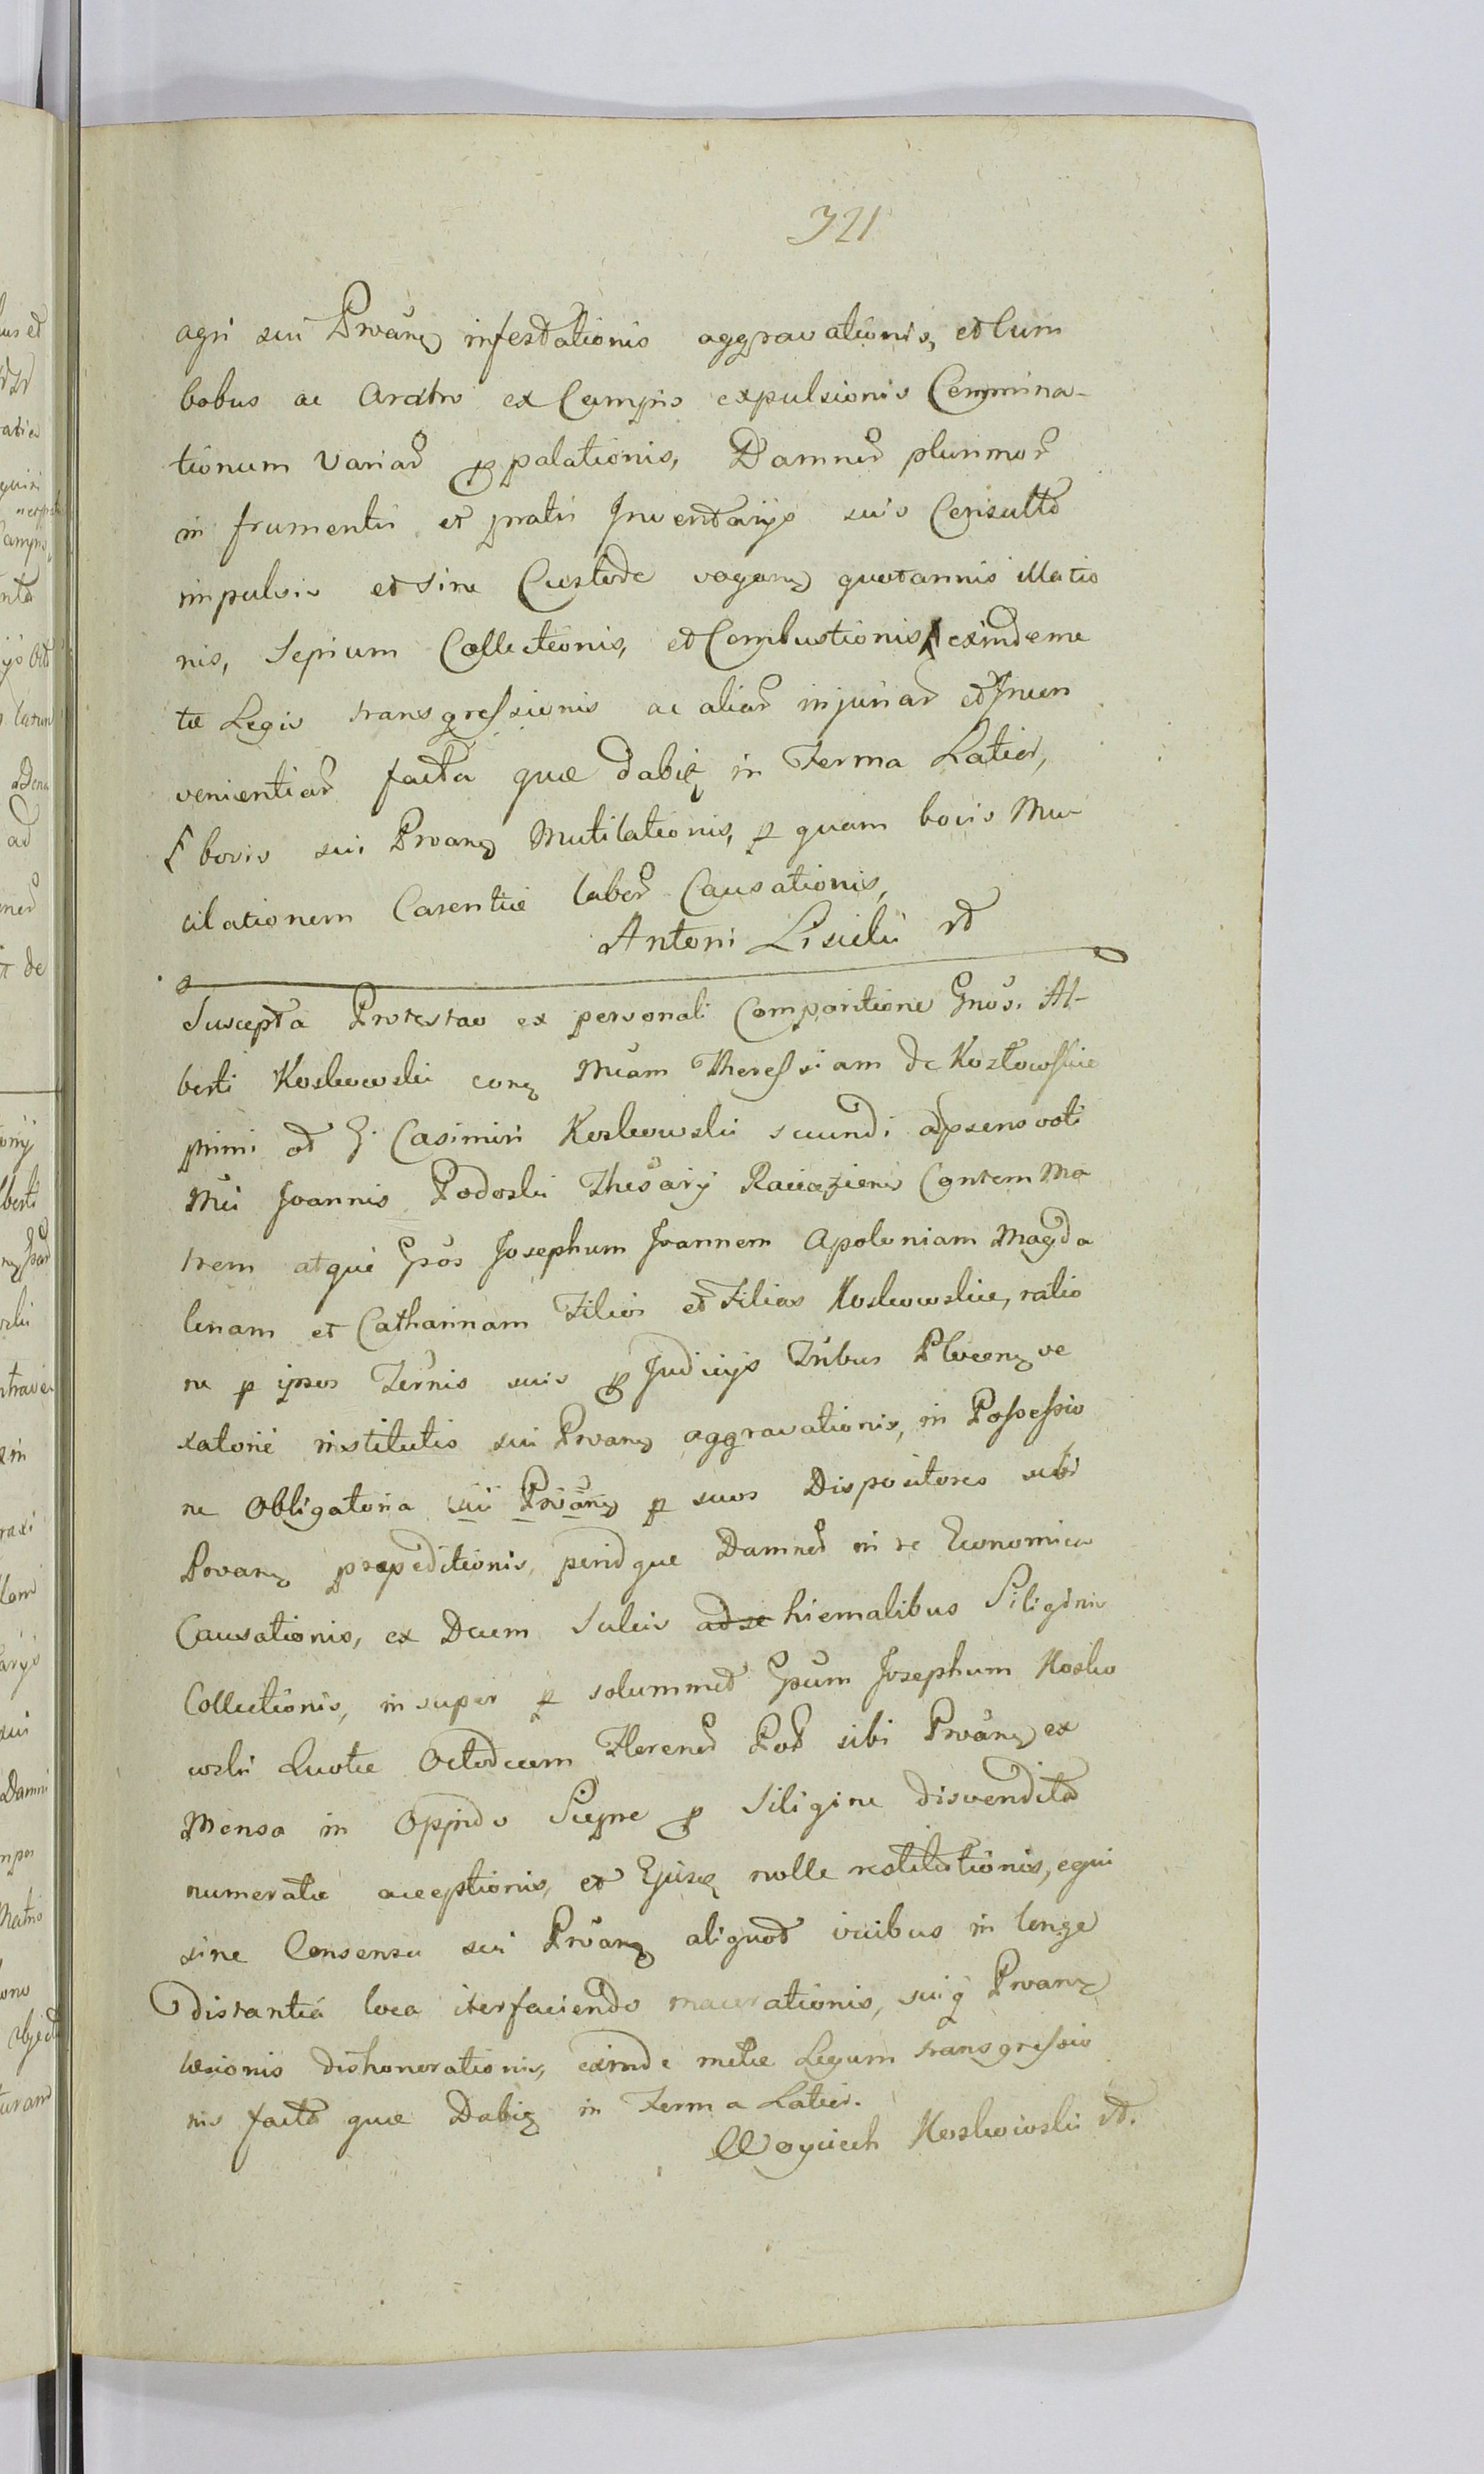 321
agri sui Prŏang infestationis aggravationis, et cum
bobus ac Aratro ex Campis expulsionis Commina-
tionum variar palationis, Damnor plurimor
in frumentis et pratis Inventarijs suis Consulto
impulsis et sine Custode vagang quotannis illatio
nis, Sepium Collectionis, et Combustionis exinde me
tæ Legis transgressionis ac aliar injuriar et Incon
venientiar facta quæ dabit in Termo Latior,
bovis sui Proang Mutilationis, p quam bovis Mu
tilationem Carentiæ labor Causationis,
Antoni Lisicki
Suscepta Protestao ex personali Comparitione Gnos. Al-
berti Koskowski cong Mŭam Theressiam de Kozłowskie
primi ad G. Casimiri Koskowski secundi ad præsens voti
Mŭi Joannis Podoski Thesary Raciazienis Contem Ma
trem atque Gnos Josephum Joannem Apoloniam Magda
lenam et Catharinam Filios et Filias Koskowskie, ratio
ne p ipsos Termis suis p Judicijs Tribus Plocen ve
xatorie institutis sui Proang aggravationis, in Possessio
ne Obligatoria sui Proang p suos Dispositores sibi
Proang præpeditionis, peridque Damnor in re Economica
Causationis, ex Decem Sulcis ad se hiemalibus Siliginis
Collectionis, in super p solummodo Gnum Josephum Kosko
wski Quotæ Octodecem Floreno Pol sibi Proang ex
Mensa in Oppido Sierpc p Siligine disvendita
numeratæ acceptionis, et Ejusq nolle restitutionis, equi
sine Consensu sui Proang aliquot vicibus in longe
distantia loca iter faciendo macerationis, suiq Proang
læsionis dishonorationis, exinde metæ Legum transgressio
nis facto quæ Dabit in Termo Latior.
Woyciech Koskowski